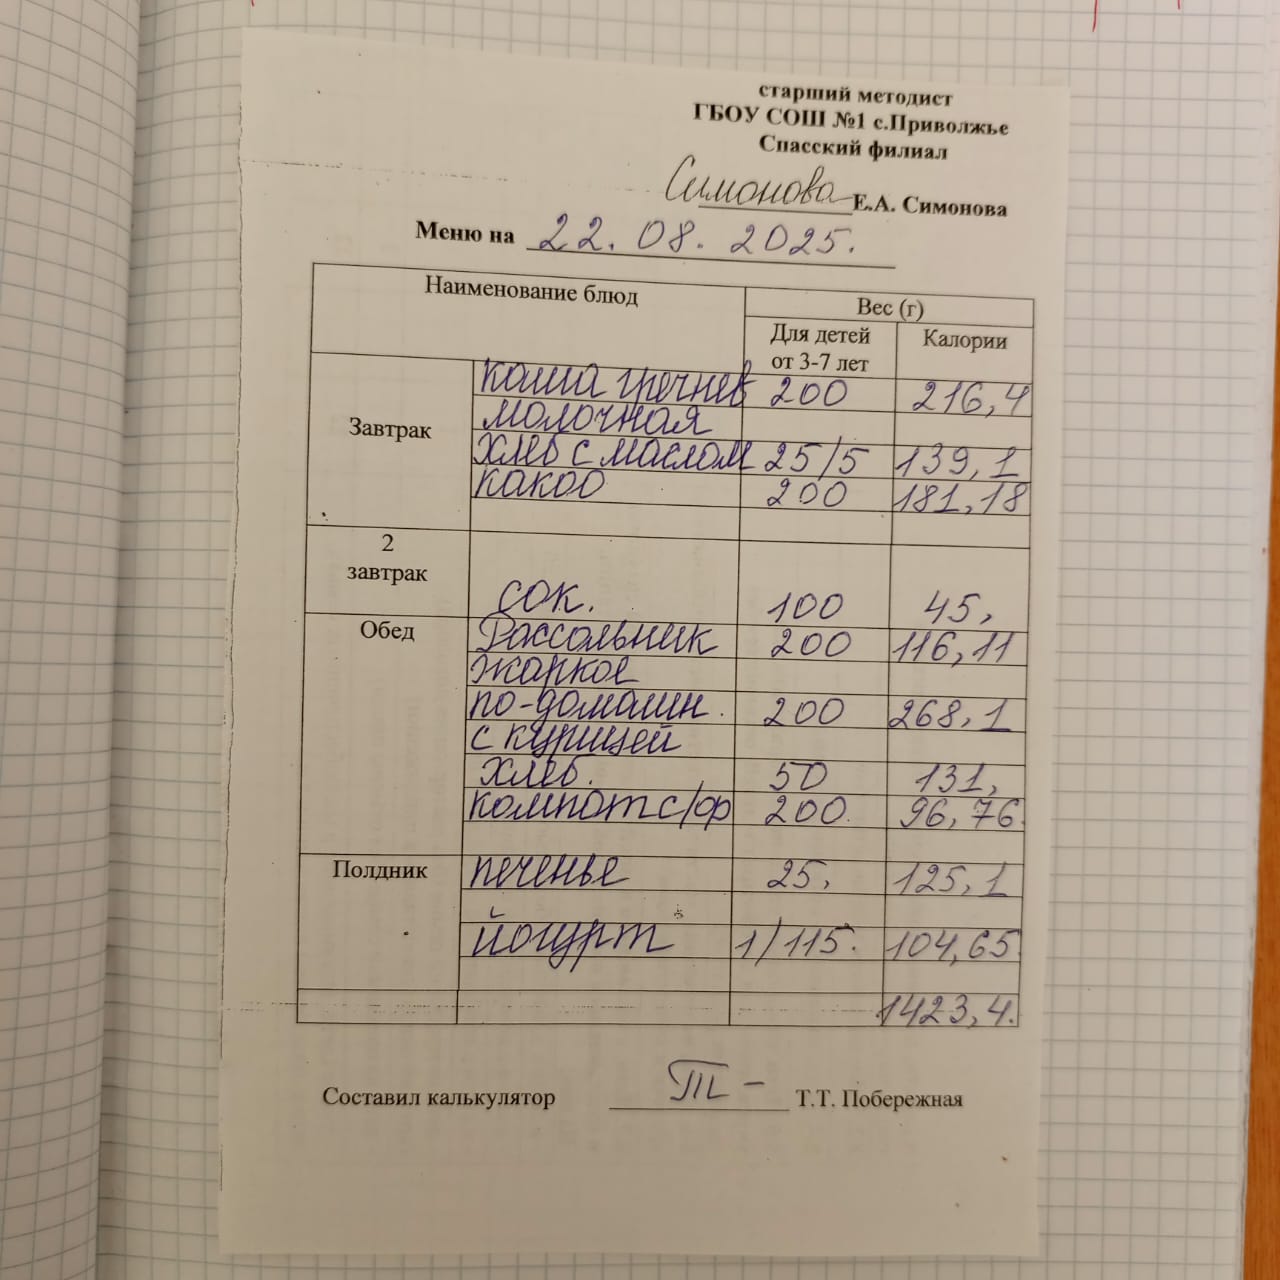 старший методист
ГБОУ СОШ №1 с.Приволжье
Спасский филиал
Симонова Е.А. Симонова
Меню на 22.08.2025.
Наименование блюд Вес (г)
Для детей от 3-7 лет Калории
Завтрак
каша гречнев 200 216,4
молочная
хлеб с маслом 25/5 139,1
какао 200 181,18
2 завтрак
сок. 100 45,
Обед
Рассольник 200 116,11
жаркое
по-домашн. 200 268,1
с курицей
хлеб. 50 131,
компот с/ф 200. 96,76
Полдник
печенье 25, 125,1
йогурт 1/115. 104,65
1423,4.
Составил калькулятор Т.Т. Побережная